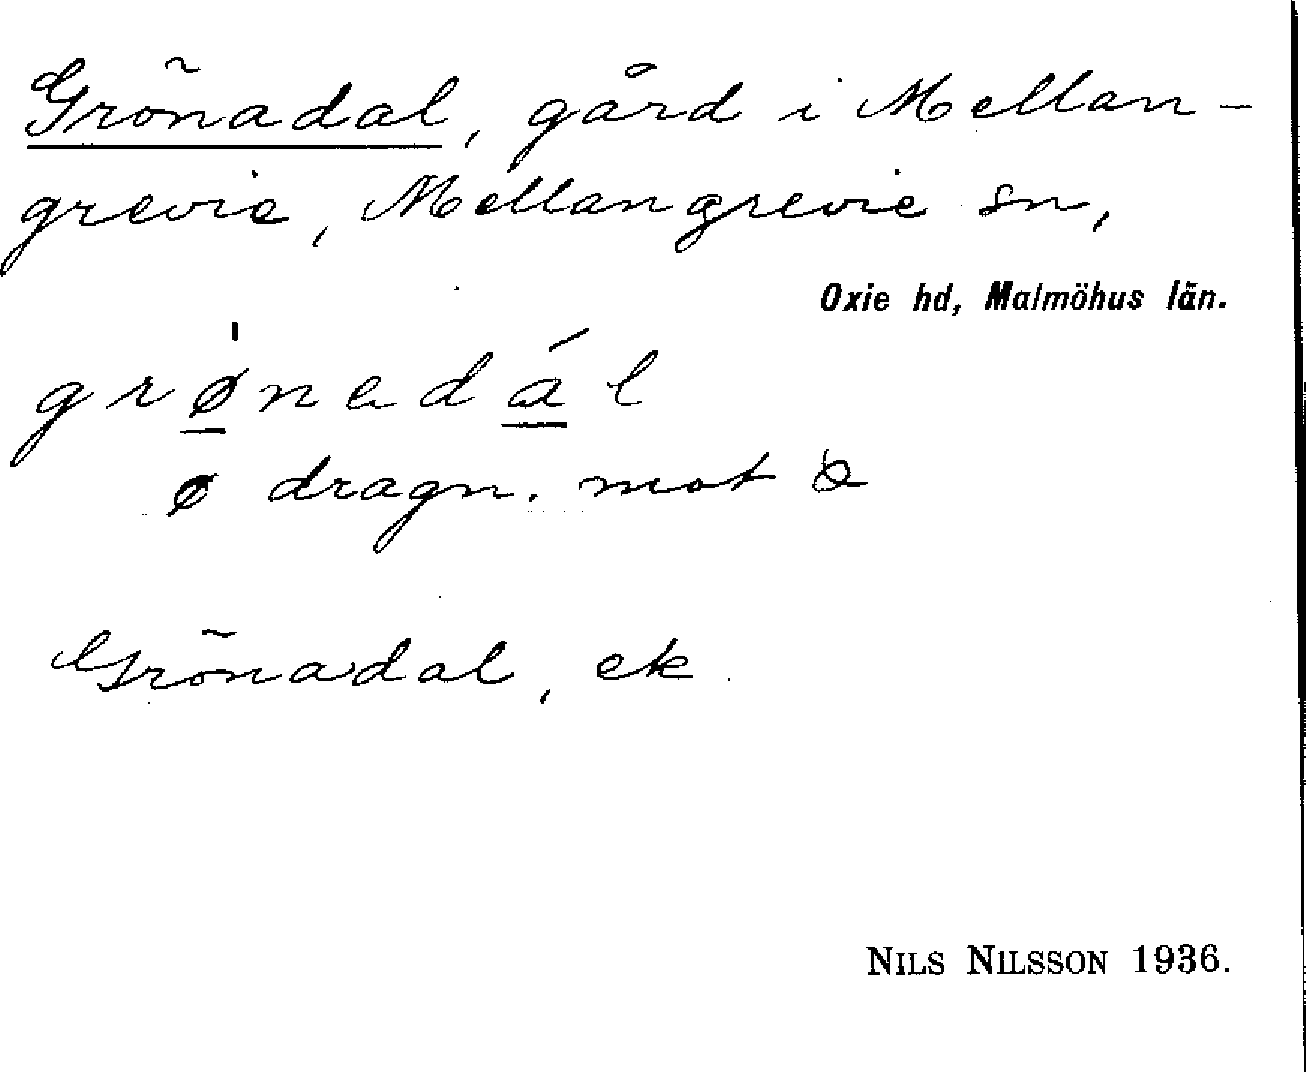 Grönadal, gård i Mellan-
grevie, Mellangrevie sn,
Oxie hd, Malmöhus län.
grø̲̍nadá̲l
ø dragn. mot
Grönadal, ek
NILS NILSSON 1936.